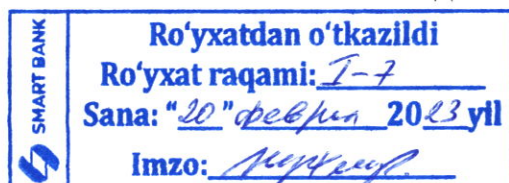 SMART BANK
Ro'yxatdan o'tkazildi
Ro'yxat raqami: I-7
Sana: "20" феврал 2023 yil
Imzo: